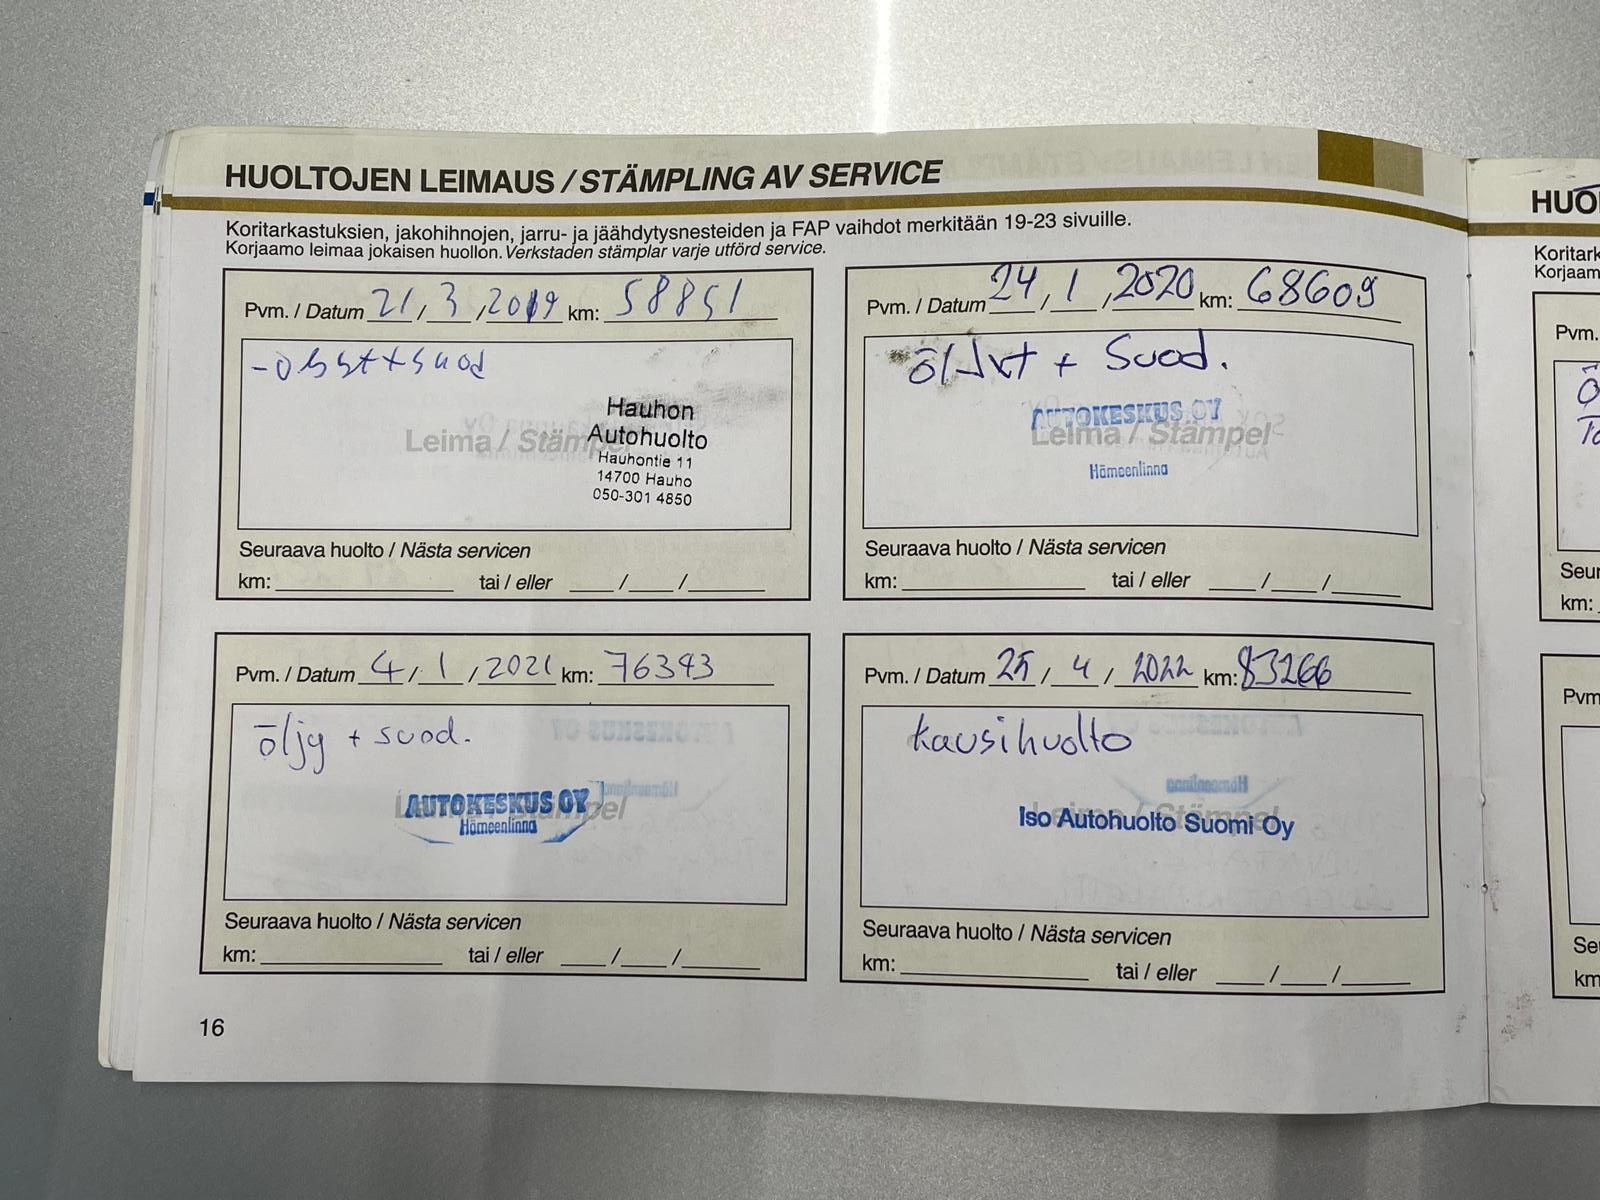 HUOLTOJEN LEIMAUS / STÄMPLING AV SERVICE
Koritarkastuksien, jakohihnojen, jarru- ja jäähdytysnesteiden ja FAP vaihdot merkitään 19-23 sivuille.
Korjaamo leimaa jokaisen huollon. Verkstaden stämplar varje utförd service.
Pvm. / Datum 21 / 3 / 2019 km: 58851
+ suod
Leima / Stämpel
Hauhon
Autohuolto
Hauhontie 11
14700 Hauho
050-301 4850
Seuraava huolto / Nästa servicen
km: tai / eller / /
Pvm. / Datum 24 / 1 / 2020 km: 68609
+ Suod.
AUTOKESKUS OY
Leima / Stämpel
Hämeenlinna
Seuraava huolto / Nästa servicen
km: tai / eller / /
Pvm. / Datum 4 / 1 / 2021 km: 76343
öljy + suod.
AUTOKESKUS OY
Leima / Stämpel
Hämeenlinna
Seuraava huolto / Nästa servicen
km: tai / eller / /
Pvm. / Datum 25 / 4 / 2022 km: 83266
kausihuolto
Leima / Stämpel
Iso Autohuolto Suomi Oy
Seuraava huolto / Nästa servicen
km: tai / eller / /
16
HUO
Koritark
Korjaam
Pvm.
Ö
Seur
km:
Pvm
Seu
km